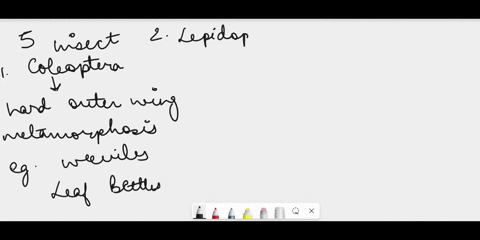 5 insect
1. Coleoptera
↓
hard outer wing
metamorphosis
eg. weeviles
Leaf Bettles
2. Lepidop